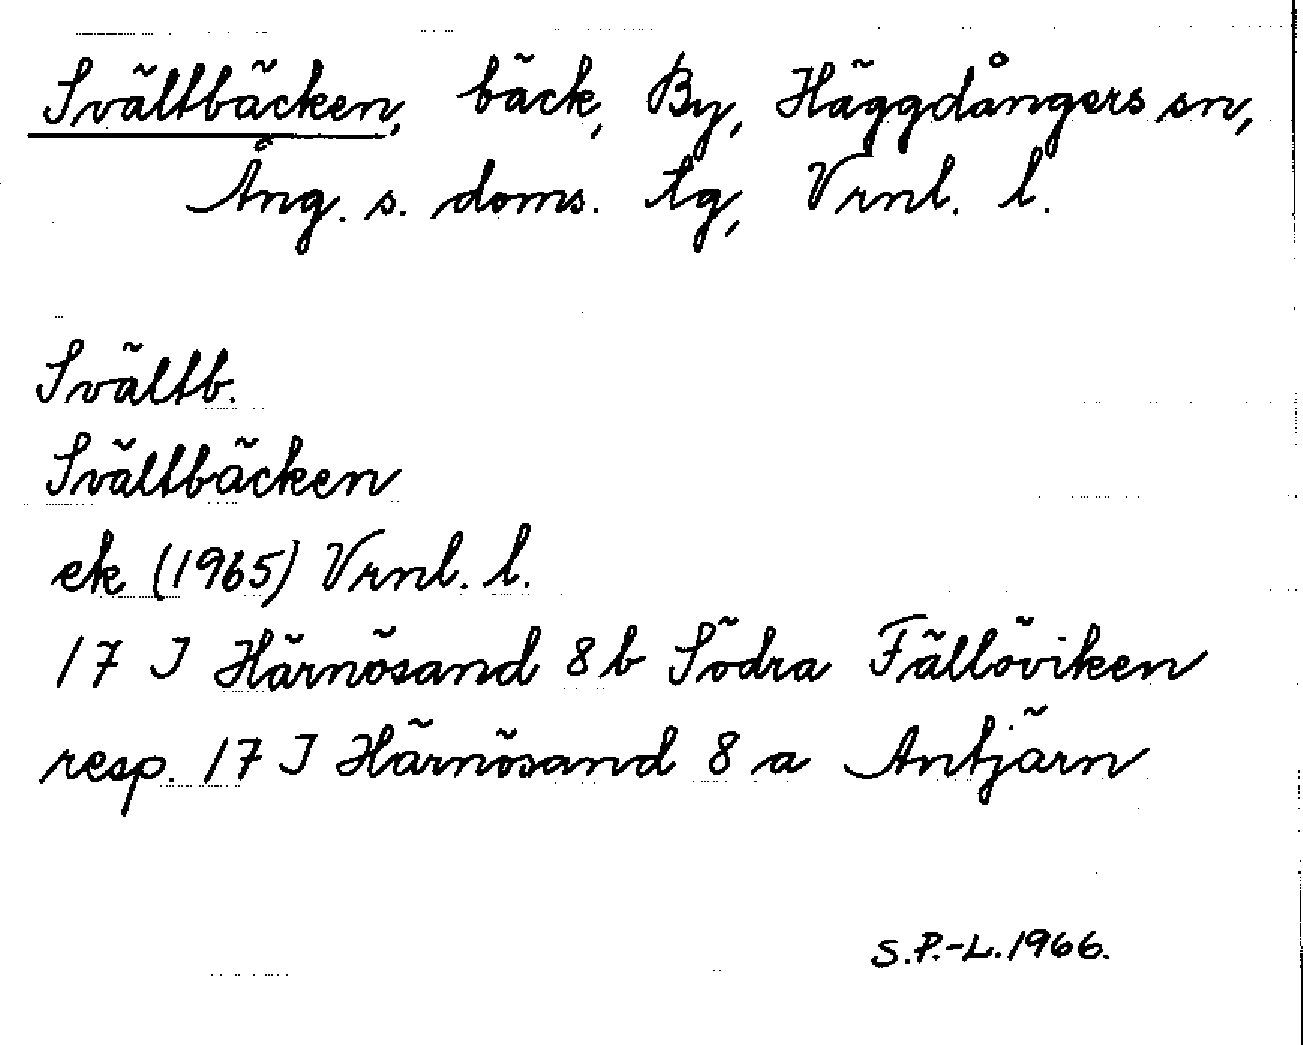 Svältbäcken, bäck, By, Häggdångers sn,
Ång. s. doms. tg, Vrnl. l.
Svältb.
Svältbäcken
ek (1965) Vrnl. l.
17 I Härnösand 8 b Södra Fällöviken
resp. 17 I Härnösand 8 a Antjärn
S.P.-L. 1966.